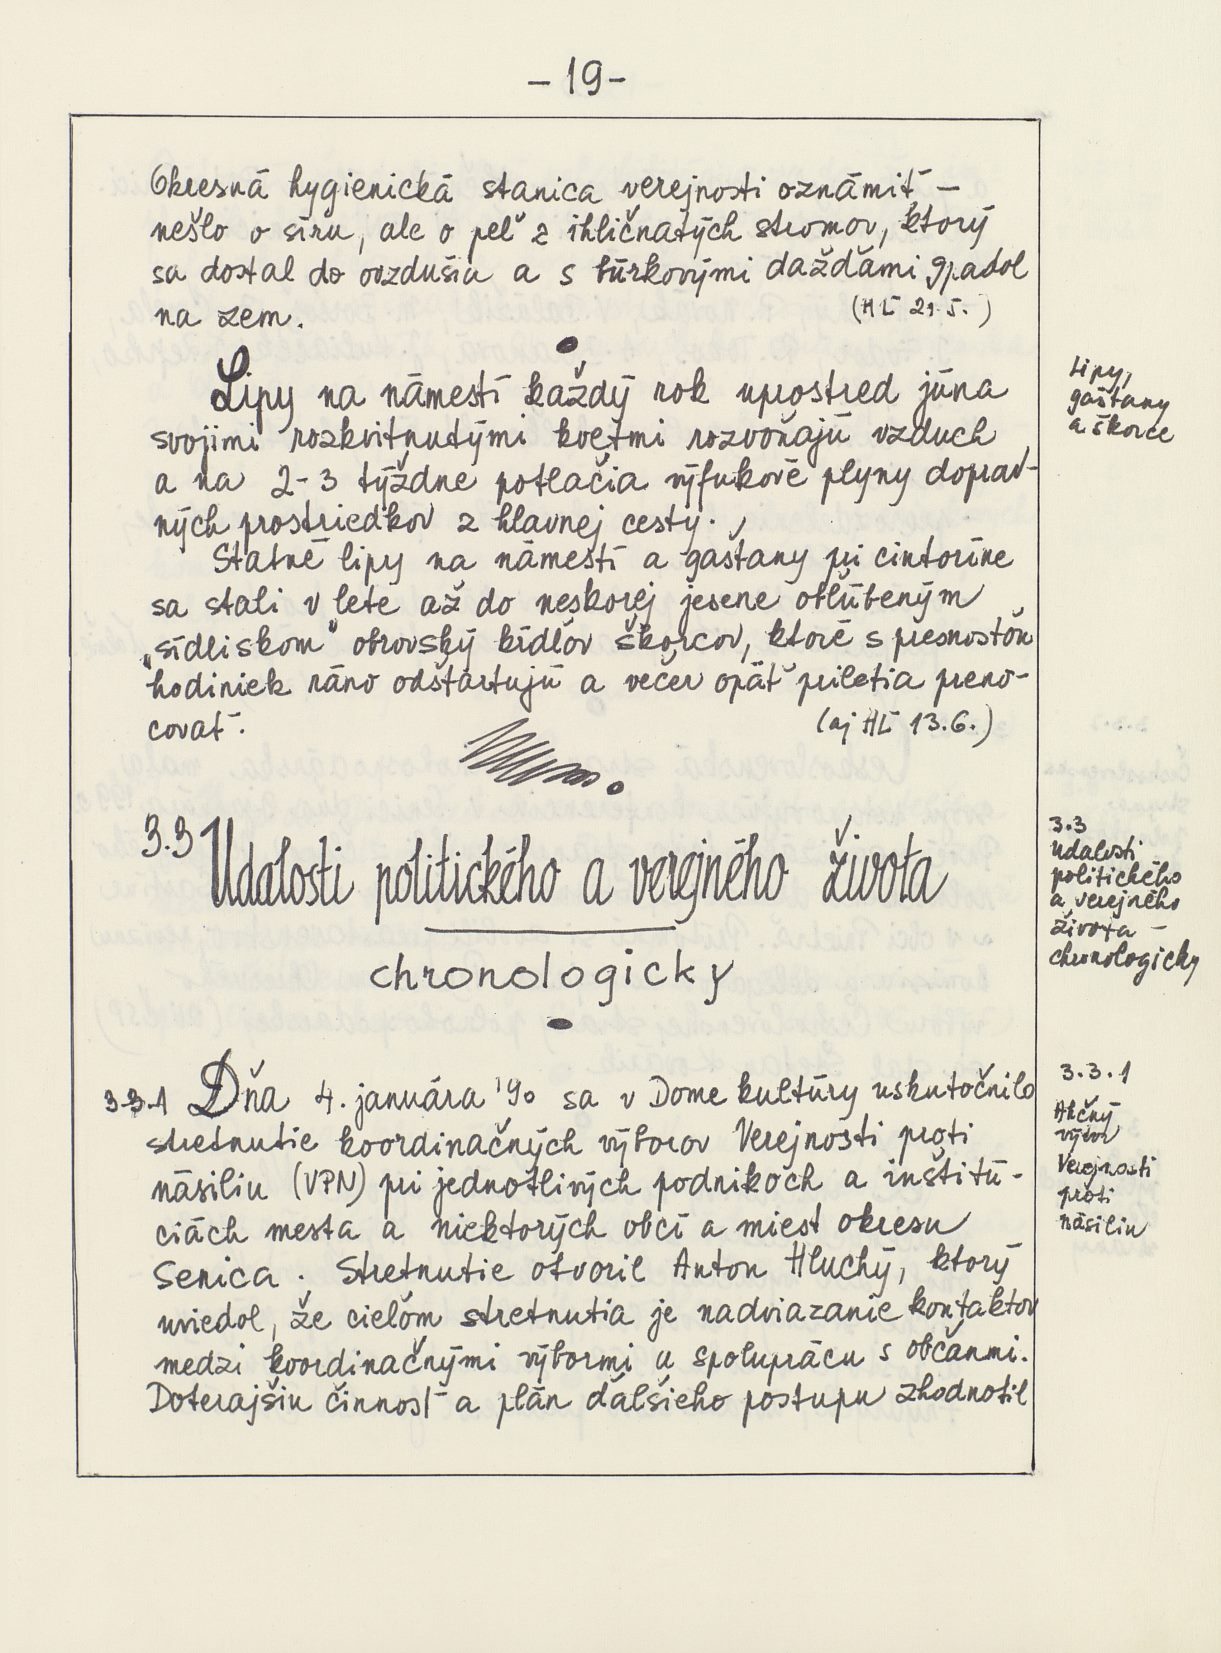 – 19 –
Okresná hygienická stanica verejnosti oznámiť –
nešlo o síru, ale o peľ z ihličnatých stromov, ktorý
sa dostal do ovzdušia a s búrkovými dažďami spadol
na zem. (HĽ 21.5.)
Lipy na námestí každý rok uprostred júna
svojimi rozkvitnutými kvetmi rozvoňajú vzduch
a na 2-3 týždne potlačia výfukové plyny doprav-
ných prostriedkov z hlavnej cesty.
Statné lipy na námestí a gaštany pri cintoríne
sa stali v lete až do neskorej jesene obľúbeným
„sídliskom" obrovský kŕdľov škorcov, ktoré s presnosťou
hodiniek ráno odštartujú a večer opäť priletia preno-
covať. (aj HĽ 13.6.)
Lipy,
gaštany
a škorce
3.3 Udalosti politického a verejného života
chronologicky
3.3
Udalosti
politického
a verejného
života –
chronologicky
3.3.1 Dňa 4. januára '90 sa v Dome kultúry uskutočnilo
stretnutie koordinačných výborov Verejnosti proti
násiliu (VPN) pri jednotlivých podnikoch a inštitú-
ciách mesta a niektorých obcí a miest okresu
Senica. Stretnutie otvoril Anton Hluchý, ktorý
uviedol, že cieľom stretnutia je nadviazanie kontaktov
medzi koordinačnými výbormi a spoluprácu s občanmi.
Doterajšiu činnosť a plán ďalšieho postupu zhodnotil
3.3.1
Akčný
výbor
Verejnosti
proti
násiliu